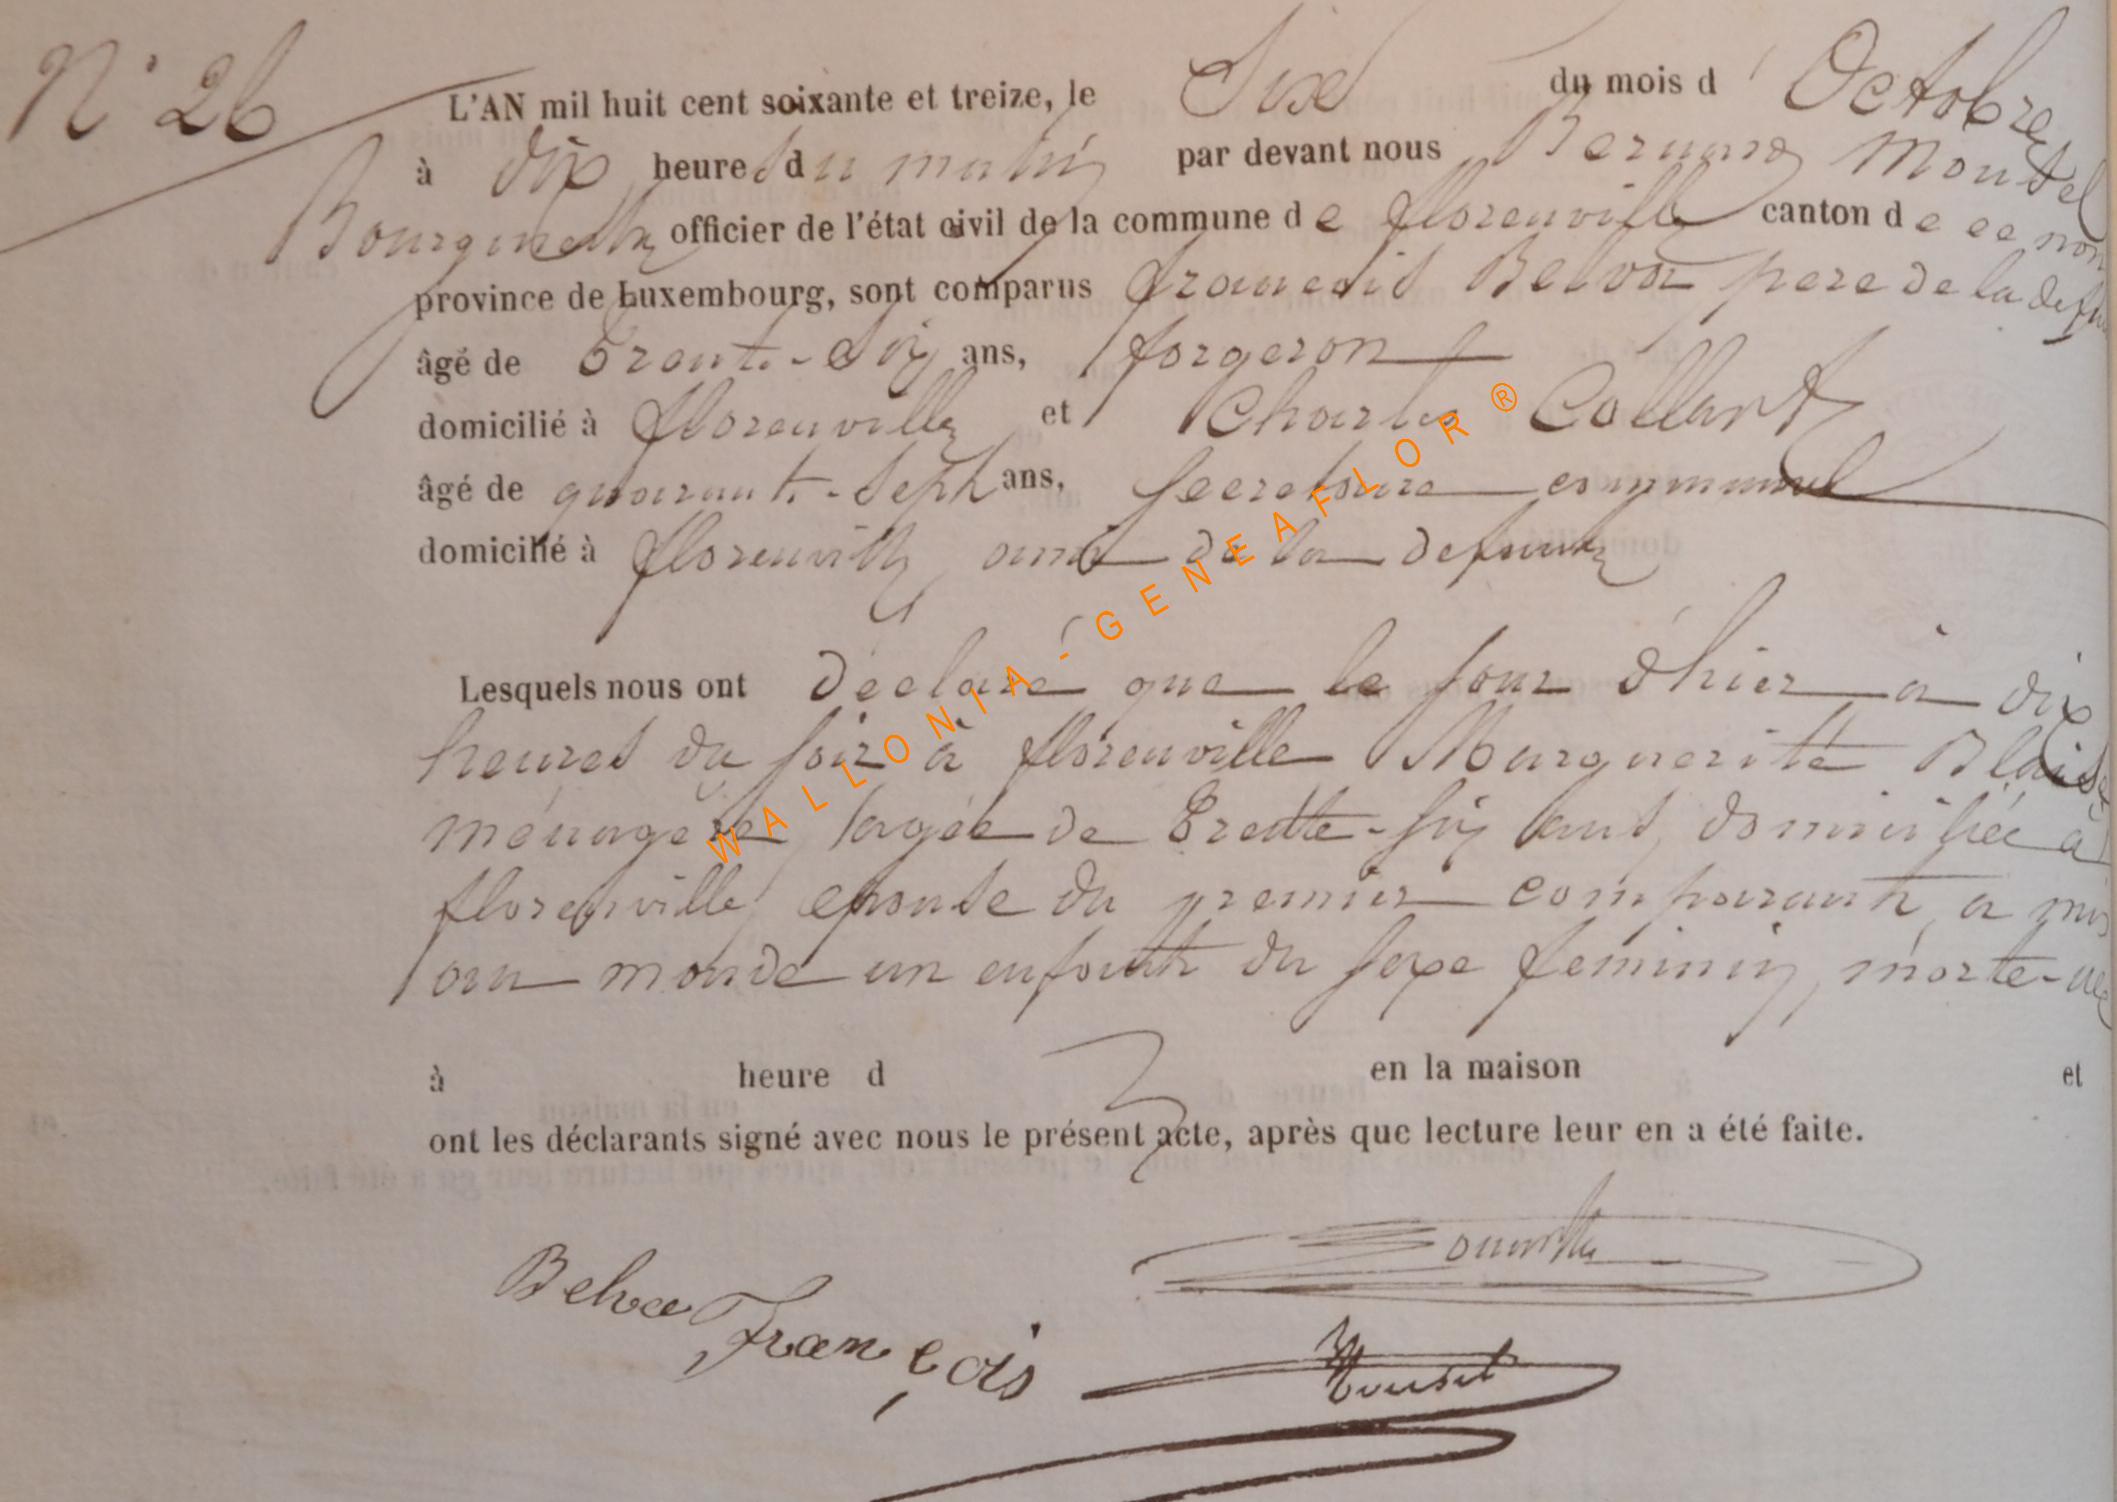 N° 26
L'AN mil huit cent soixante et treize, le Six du mois d'Octobre
à dix heures du matin par devant nous Bernard Moutel
Bourgmestre officier de l'état civil de la commune de florenville canton de ce nom
province de Luxembourg, sont comparus francois Belva pere de la
âgé de Trente-Six ans, forgeron
domicilié à florenville et Charles Collart
âgé de quarante-Sept ans, Secretaire communal
domicilié à florenville ami de la defunte
Lesquels nous ont déclaré que le jour d'hier à dix
heures du soir à florenville Marguerite Blaise
ménagère, agée de Trente-six ans, domiciliée à
florenville, epouse du premier comparant, a mis
au monde un enfant du sexe feminin, morte-née
à heure d en la maison et
ont les déclarants signé avec nous le présent acte, après que lecture leur en a été faite.
Belva François
WALLONIA-GENEAFLOR®